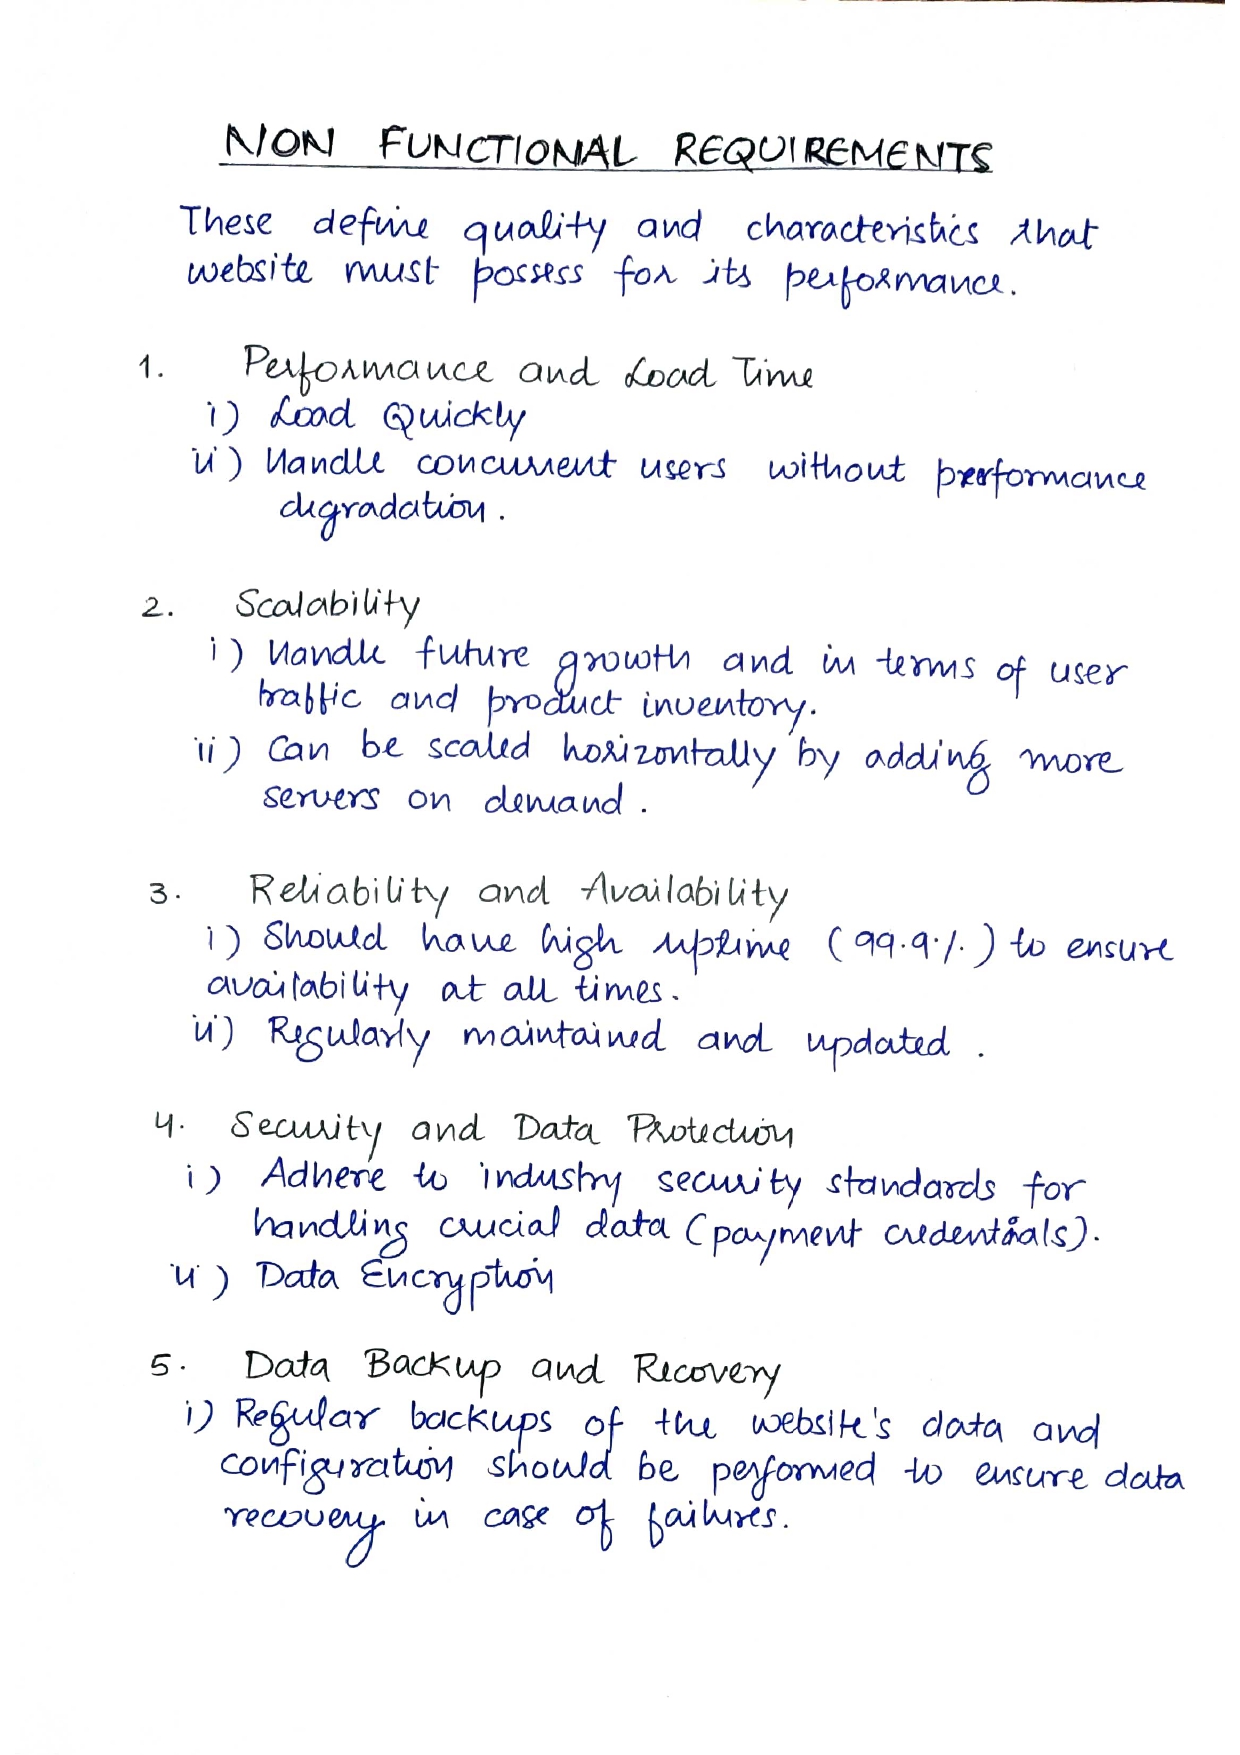 NON FUNCTIONAL REQUIREMENTS
These define quality and characteristics that
website must possess for its performance.
1. Performance and Load Time
i) Load Quickly
ii) Handle concurrent users without performance
degradation.
2. Scalability
i) Handle future growth and in terms of user
traffic and product inventory.
ii) Can be scaled horizontally by adding more
servers on demand.
3. Reliability and Availability
i) Should have high uptime (99.9%) to ensure
availability at all times.
ii) Regularly maintained and updated.
4. Security and Data Protection
i) Adhere to industry security standards for
handling crucial data (payment credentials).
ii) Data Encryption
5. Data Backup and Recovery
i) Regular backups of the website's data and
configuration should be performed to ensure data
recovery in case of failures.